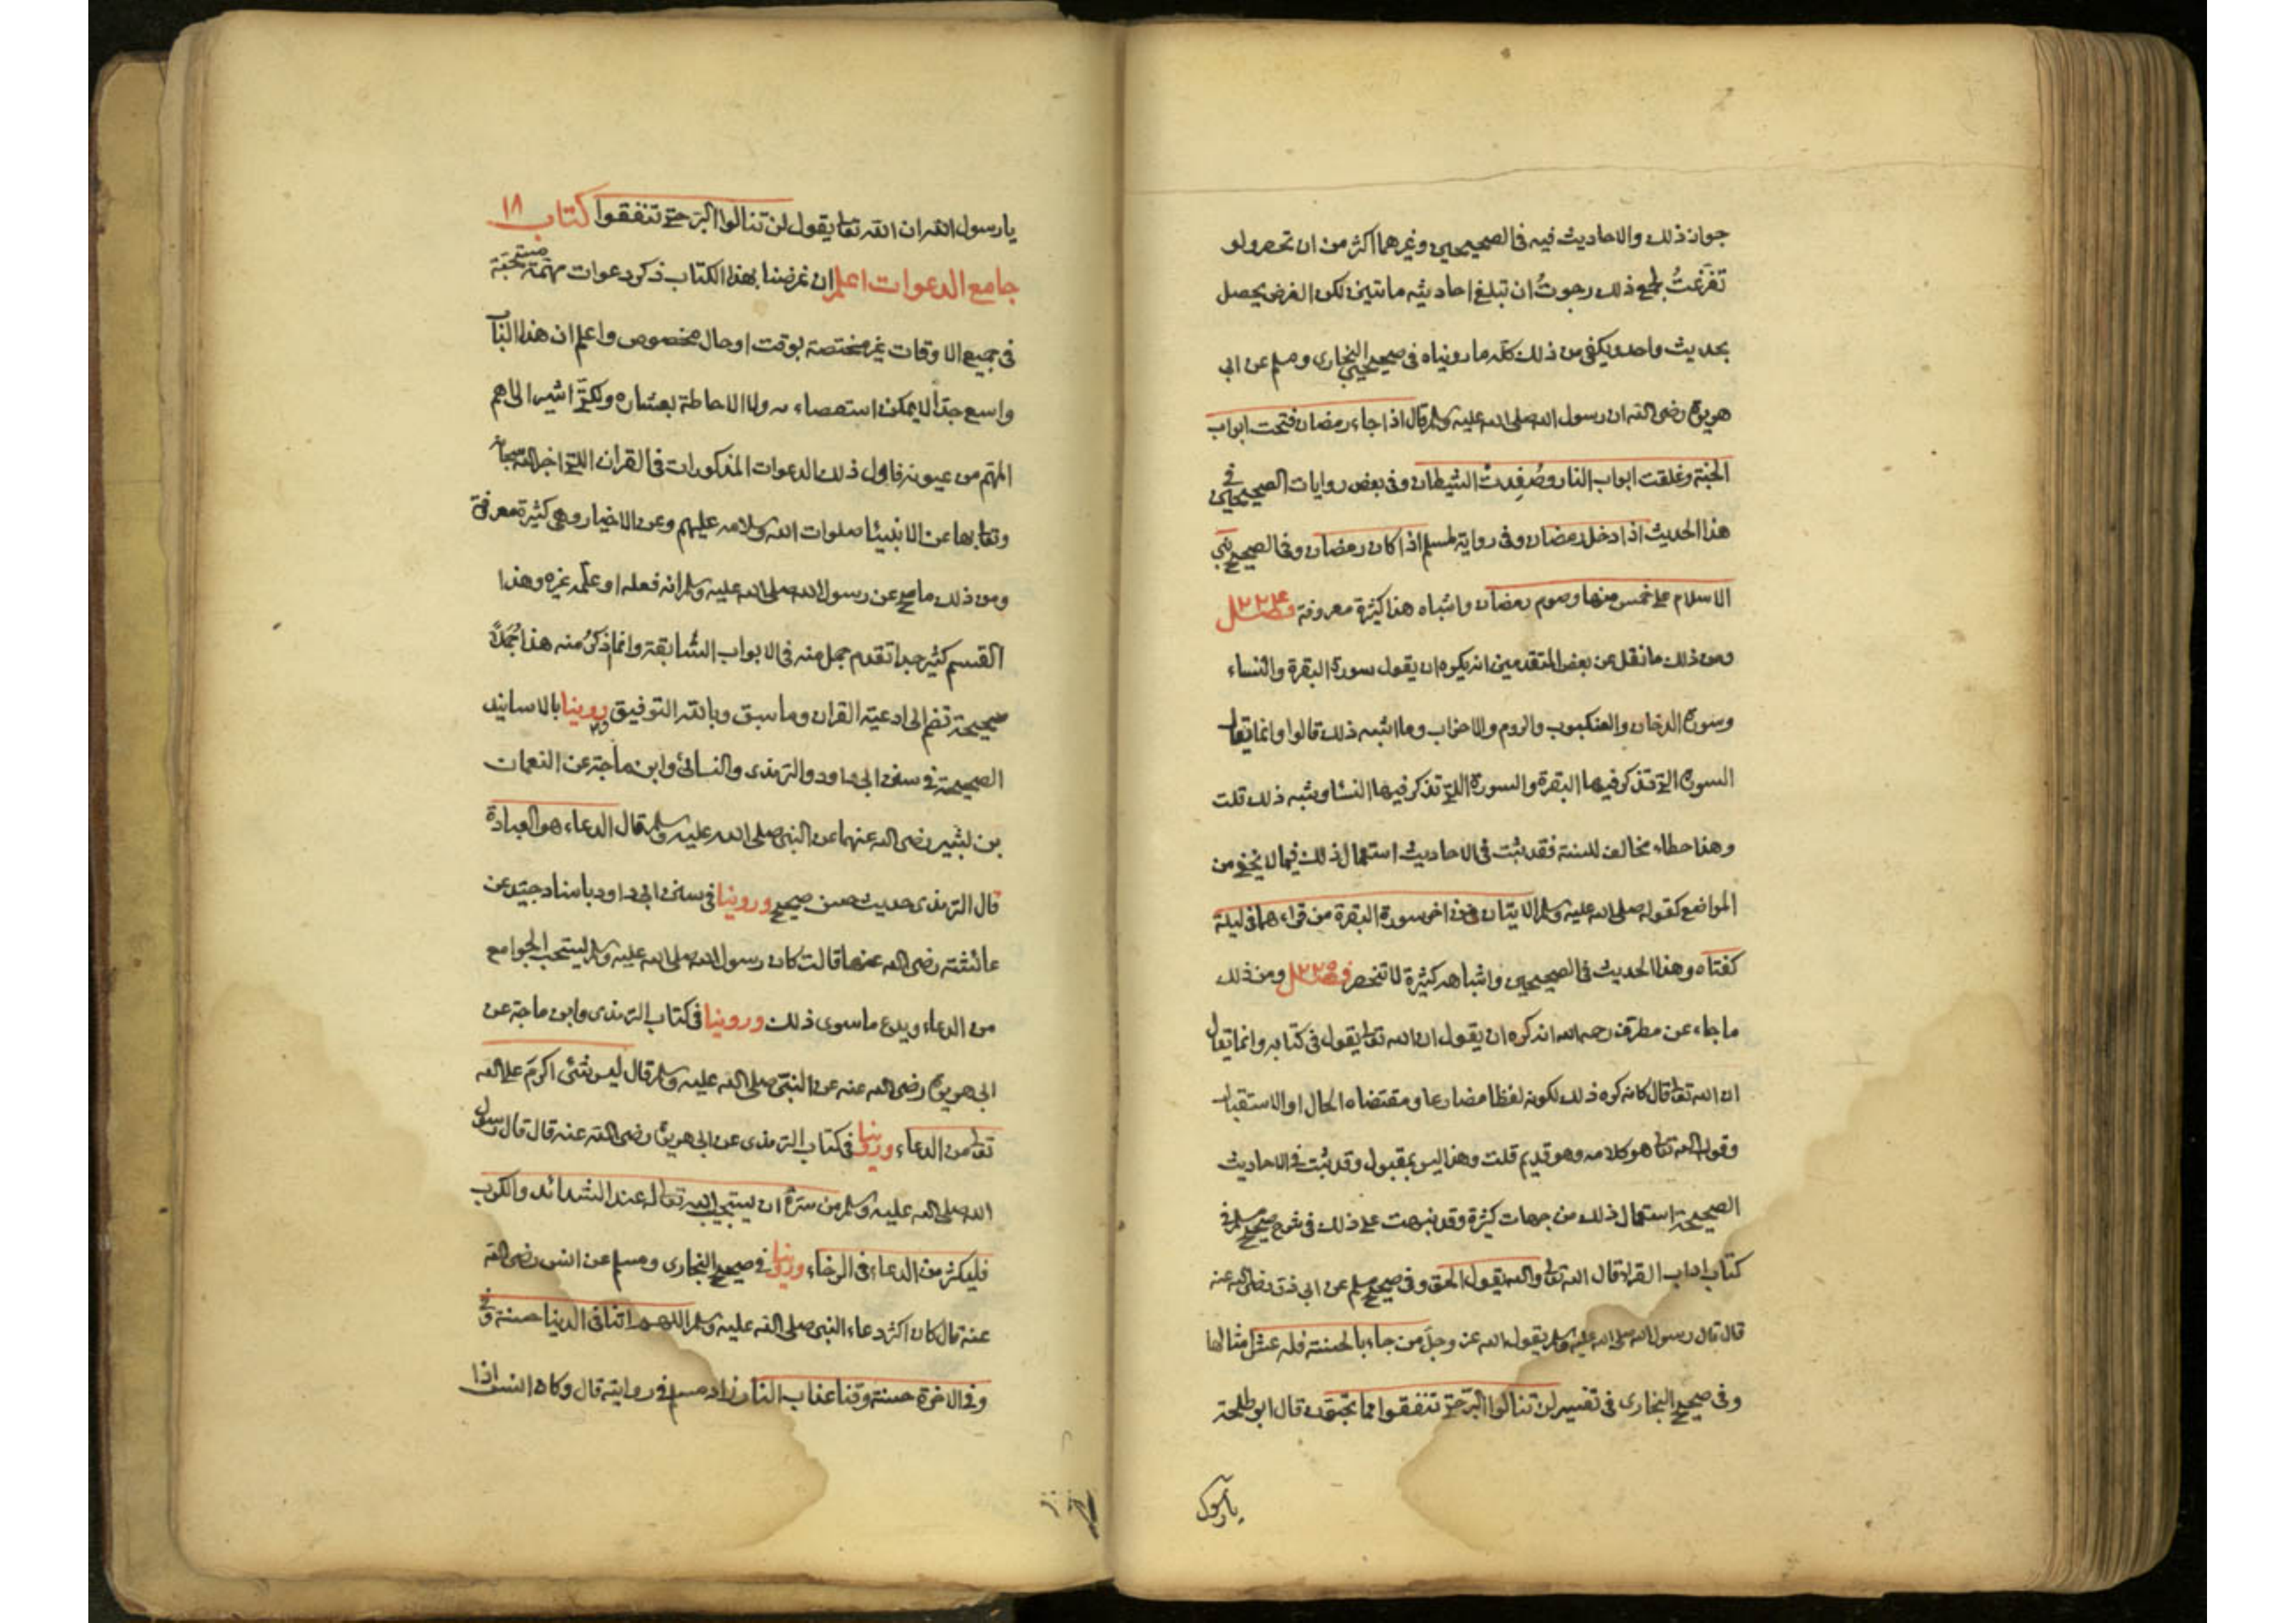 جواز ذلك والاحاديث فيه فى الصحيحين وغيرهما اكثر من ان تحصر ولو
تفرغتُ لجمع ذلك رجوتُ ان تبلغ احاديثه مائتين لكن الغرض يحصل
بحديث واحد ويكفى من ذلك كله ما رويناه فى صحيحى البخارى ومسلم عن ابى
هريرة رضى الله ان رسول الله صلى الله عليه وسلم قال اذا جاء رمضان فتحت ابواب
الجنة وغلقت ابواب النار وصُفِدتْ الشيطان وفى بعض روايات الصحيحين فى
هذا الحديث اذا دخل رمضان وفى رواية لمسلم اذا كان رمضان وفى الصحيح بنى
الاسلام على خمس منها وصوم رمضان واشباه هذا كثيرة معروفة فصل ٢٢٤
ومن ذلك ما نقل عن بعض المتقدمين انه يكره ان يقول سورة البقرة والنساء
وسورة الدخان والعنكبوب والروم والاحزاب وما اشبه ذلك قالوا وانما يقال
السورة التى تذكر فيها البقرة والسورة التى تذكر فيها النسا وشبه ذلك قلت
وهذا خطاء مخالف للسنة فقد ثبت فى الاحاديث استعمال ذلك فيما لا نحصى من
المواضع كقوله صلى الله عليه وسلم الايتان من اخر سورة البقرة من قراءهما فى ليلة
كفتاه وهذا الحديث فى الصحيحين واشباهه كثيرة لا تنحصر فصل ٢٢٥ ومن ذلك
ما جاء عن مطرف رحمه الله انه كره ان يقول ان الله تعا يقول فى كتابه وانما يقال
ان الله تعا قال كانه كره ذلك لكونه لفظا مضارعا ومقتضاه الحال او الاستقبال
وقول الله تعا هو كلامه وهو قديم قلت وهذا ليس بمقبول وقد ثبت فى الاحاديث
الصحيحة استعمال ذلك من جهات كثيرة وقد نبهت على ذلك فى شرح صحيح مسلم فى
كتاب اداب القراء قال الله تعا والله يقول الحق وفى صحيح مسلم عن ابى ذر رضى الله عنه
قال قال رسول الله صلى الله عليه وسلم يقول الله عز وجل من جاء بالحسنة فله عشر امثالها
وفى صحيح البخارى فى تفسير لن تنالوا البرّ حتى تنفقوا مما تحبون قال ابو طلحة
يا رسول
يا رسول الله ان الله تعا يقول لن تنالوا البرّ حتى تنفقوا كتاب ١٨
جامع الدعوات اعلم ان غرضنا بهذا الكتاب ذكر دعوات مهمّة مستحبّة
فى جميع الاوقات غير مختصة بوقت او حال مخصوص واعلم ان هذا البا
واسع جدّاً لا يمكن استقصاءه ولا الاحاطة بعشاره ولكنّى اشير الى اهم
المهّم من عيونه فاول ذلك الدعوات المذكورات فى القران التى اخبر الله سبحانه
وتعا بها عن الانبيئا صلوات الله وسلامه عليهم وعن الاخيار وهى كثيرة معرفة
ومن ذلك ما صح عن رسول الله صلى الله عليه وسلم انه فعله او علّمه غيره وهذا
القسم كثير جدا تقدم جمل منه فى الابواب السّابقة وانما اذكرُ منه هذا جُمَلاً
صحيحة تضم الى ادعية القران وما سبق وبالله التوفيق روينا بالاسانيد
الصحيحة فى سنن ابى داود والترمذى والنسائى وابن ماجة عن النعمان
بن بشير رضى الله عنهما عن النبى صلى الله عليه وسلم قال الدعاء هو العبادة
قال الترمذى حديث حسن صحيح وروينا فى سنن ابى داود باسناد جيّد عن
عائشة رضى الله عنها قالت كان رسول الله صلى الله عليه وسلم يستحب الجوامع
من الدعاء ويدع ما سوى ذلك وروينا فى كتاب الترمذى وابن ماجة عن
ابى هريرة رضى الله عنه عن النبّى صلى الله عليه وسلم قال ليس شئى اكرمَ على الله
تعا من الدعاء وروينا فى كتاب الترمذى عن ابى هريرة رضى الله عنه قال قال رسول
الله صلى الله عليه وسلم من سرّهُ ان يستجيب الله تعالى له عند الشدائد والكرب
فليكثر من الدعاء فى الرخاء وروينا فى صحيح البخارى ومسلم عن انس رضى الله
عنه قال كان اكثر دعاء النبى صلى الله عليه وسلم اللهم اتنا فى الدنيا حسنة و
وفى الاخرة حسنة وقنا عذاب النار زاد مسلم فى روايته قال وكان انس اذا